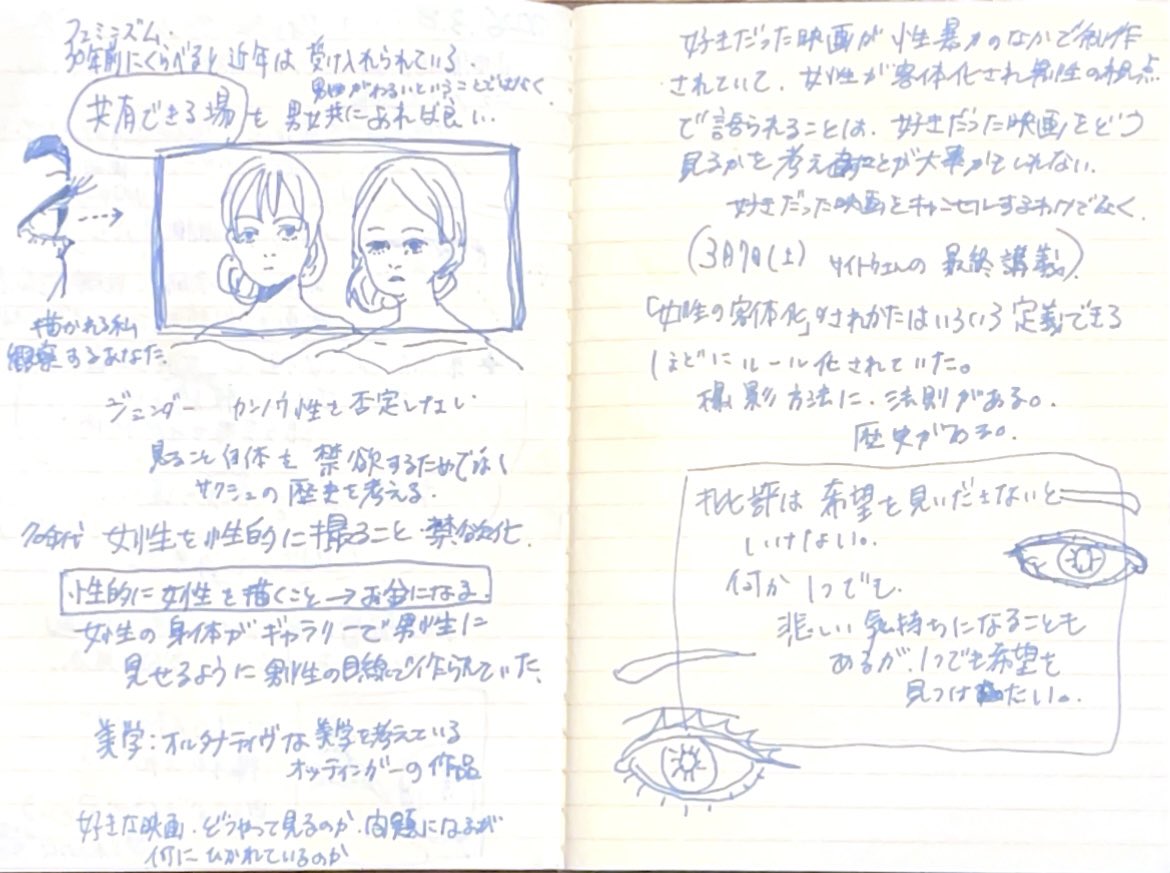 フェミニズム.
30年前にくらべると近年は受け入れられている.
男性がわるいということではなく
共有できる場も男女共にあれば良い.
描かれる私
観察するあなた.
ジェンダー カンノウ性を否定しない
見ること自体を禁欲するためでなく
サクシュの歴史を考える.
70年代 女性を性的に撮ること 禁欲化.
性的に女性を描くこと→お金になる.
女性の身体がギャラリーで男性に
見せるように男性の目線で作られていた.
美学:オルタナティヴな美学を考えている
オッティンガーの作品
好きな映画.どうやって見るのか.問題になるが
何にひかれているのか
好きだった映画が性暴力のなかで制作
されていて.女性が客体化され男性の視点
で語られることは.好きだった映画をどう
見るかを考えることが大事かもしれない.
好きだった映画をキャンセルするわけでなく.
(3月7日(土) サイトウさんの最終講義)
「女性の客体化」のされかたはいろいろ定義できる
ほどにルール化されていた。
撮影方法に.法則がある。
歴史がある。
批評は希望を見いださないと
いけない。
何か1つでも.
悲しい気持ちになることも
あるが.1つでも希望を
見つけたい。